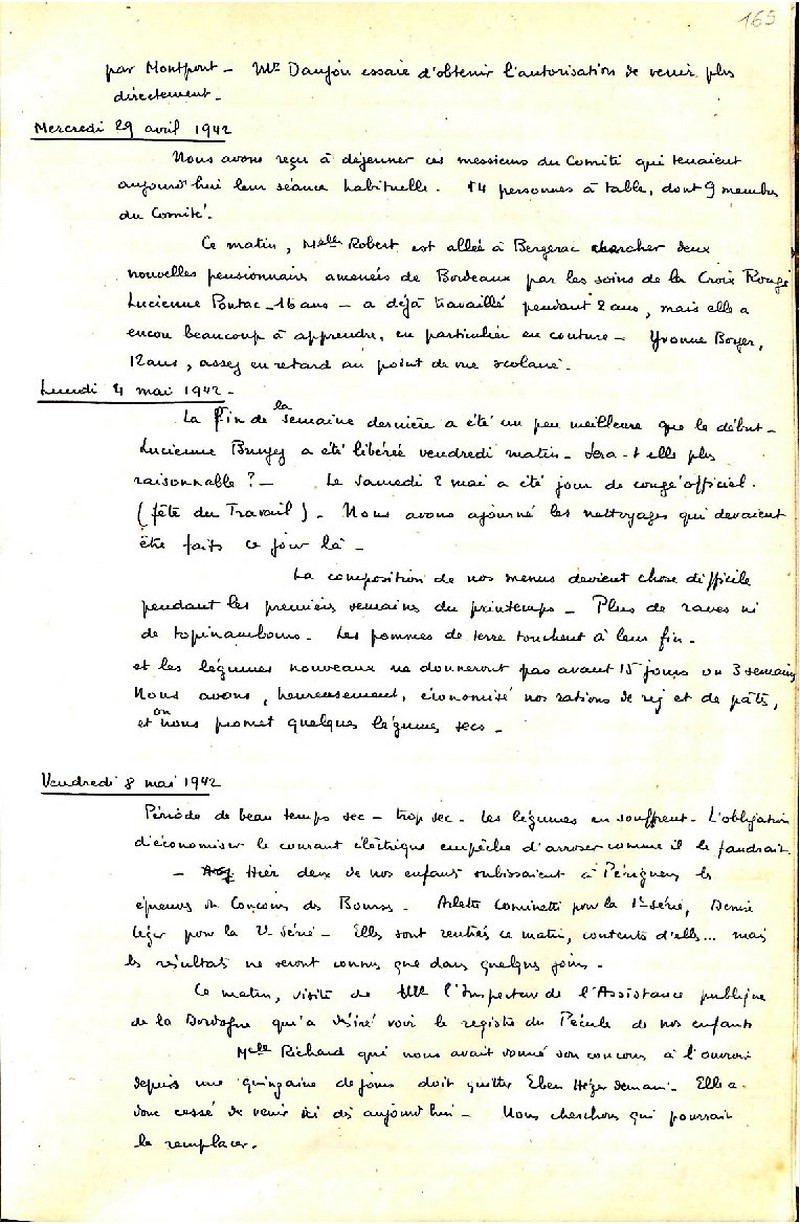 165
par Montpont – Mr Daujon essaie d'obtenir l'autorisation de venir plus
directement –
Mercredi 29 avril 1942
Nous avons reçu à déjeuner ces messieurs du Comité qui tenaient
aujourd'hui leur séance habituelle. 14 personnes à table, dont 9 membres
du Comité.
Ce matin, Melle Robert est allée à Bergerac chercher deux
nouvelles pensionnaires amenées de Bordeaux par les soins de la Croix Rouge
Lucienne Pontac – 16 ans – a déjà travaillé pendant 2 ans, mais elle a
encore beaucoup à apprendre, en particulier en couture – Yvonne Boyer,
12 ans, assez en retard au point de vue scolaire.
Lundi 4 mai 1942 –
La fin de la semaine dernière a été un peu meilleure que le début –
Lucienne a été libérée vendredi matin – Sera-t-elle plus
raisonnable ? – Le Samedi 2 mai a été jour de congé officiel.
(fête du Travail) – Nous avons ajourné les nettoyages qui devaient
être faits ce jour là –
La composition de nos menus devient chose difficile
pendant les premières semaines du printemps – Plus de raves ni
de topinambours – Les pommes de terre touchent à leur fin –
et les légumes nouveaux ne donneront pas avant 15 jours ou 3 semaines
Nous avons, heureusement, économisé nos rations de riz et de pâtes,
et on nous promet quelques légumes secs –
Vendredi 8 mai 1942
Période de beau temps sec – trop sec – les légumes en souffrent – L'obligation
d'économiser le courant électrique empêche d'arroser comme il le faudrait.
– Hier deux de nos enfants subissaient à Périgueux les
épreuves du Concours des Bourses – Arlette Cominetti pour la 1re série, Denise
Léger pour la 2e série – Elles sont rentrées ce matin, contentes d'elles... mais
les résultats ne seront connus que dans quelques jours –
Ce matin, visite de l'Inspecteur de l'Assistance publique
de la Dordogne qui a désiré voir le registre du Pécule de nos enfants
Melle Richard qui nous avait donné son concours à l'ouvroir
depuis une quinzaine de jours doit quitter Eben Hézer demain – Elle a
donc cessé de venir ici dès aujourd'hui – Nous cherchons qui pourrait
la remplacer.